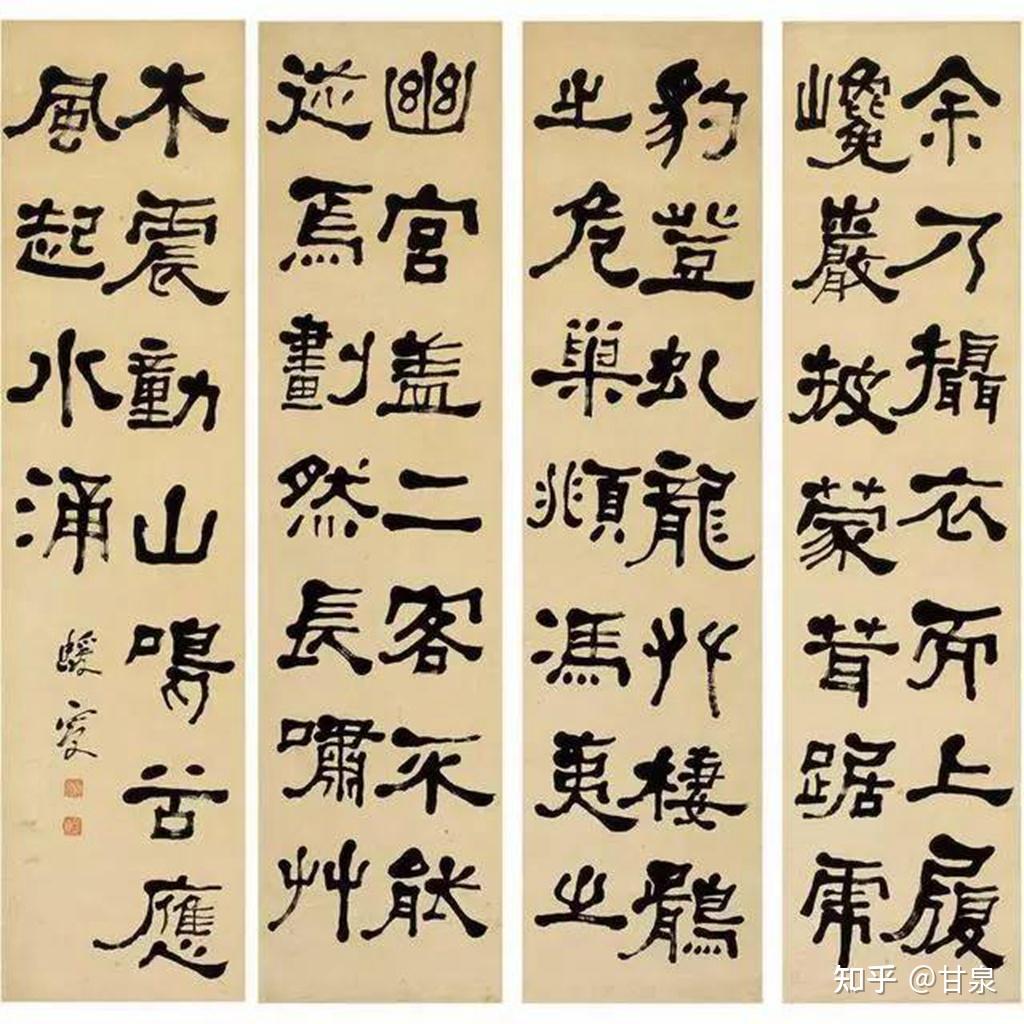 余乃攝衣而上履
巉巖披蒙茸踞虎
豹登虬龍𠬜棲鶻
之危巢頫馮夷之
幽宮盖二客不能
從焉劃然長嘯艸
木震動山鳴谷應
風起水涌
蝯叟
知乎 @甘泉